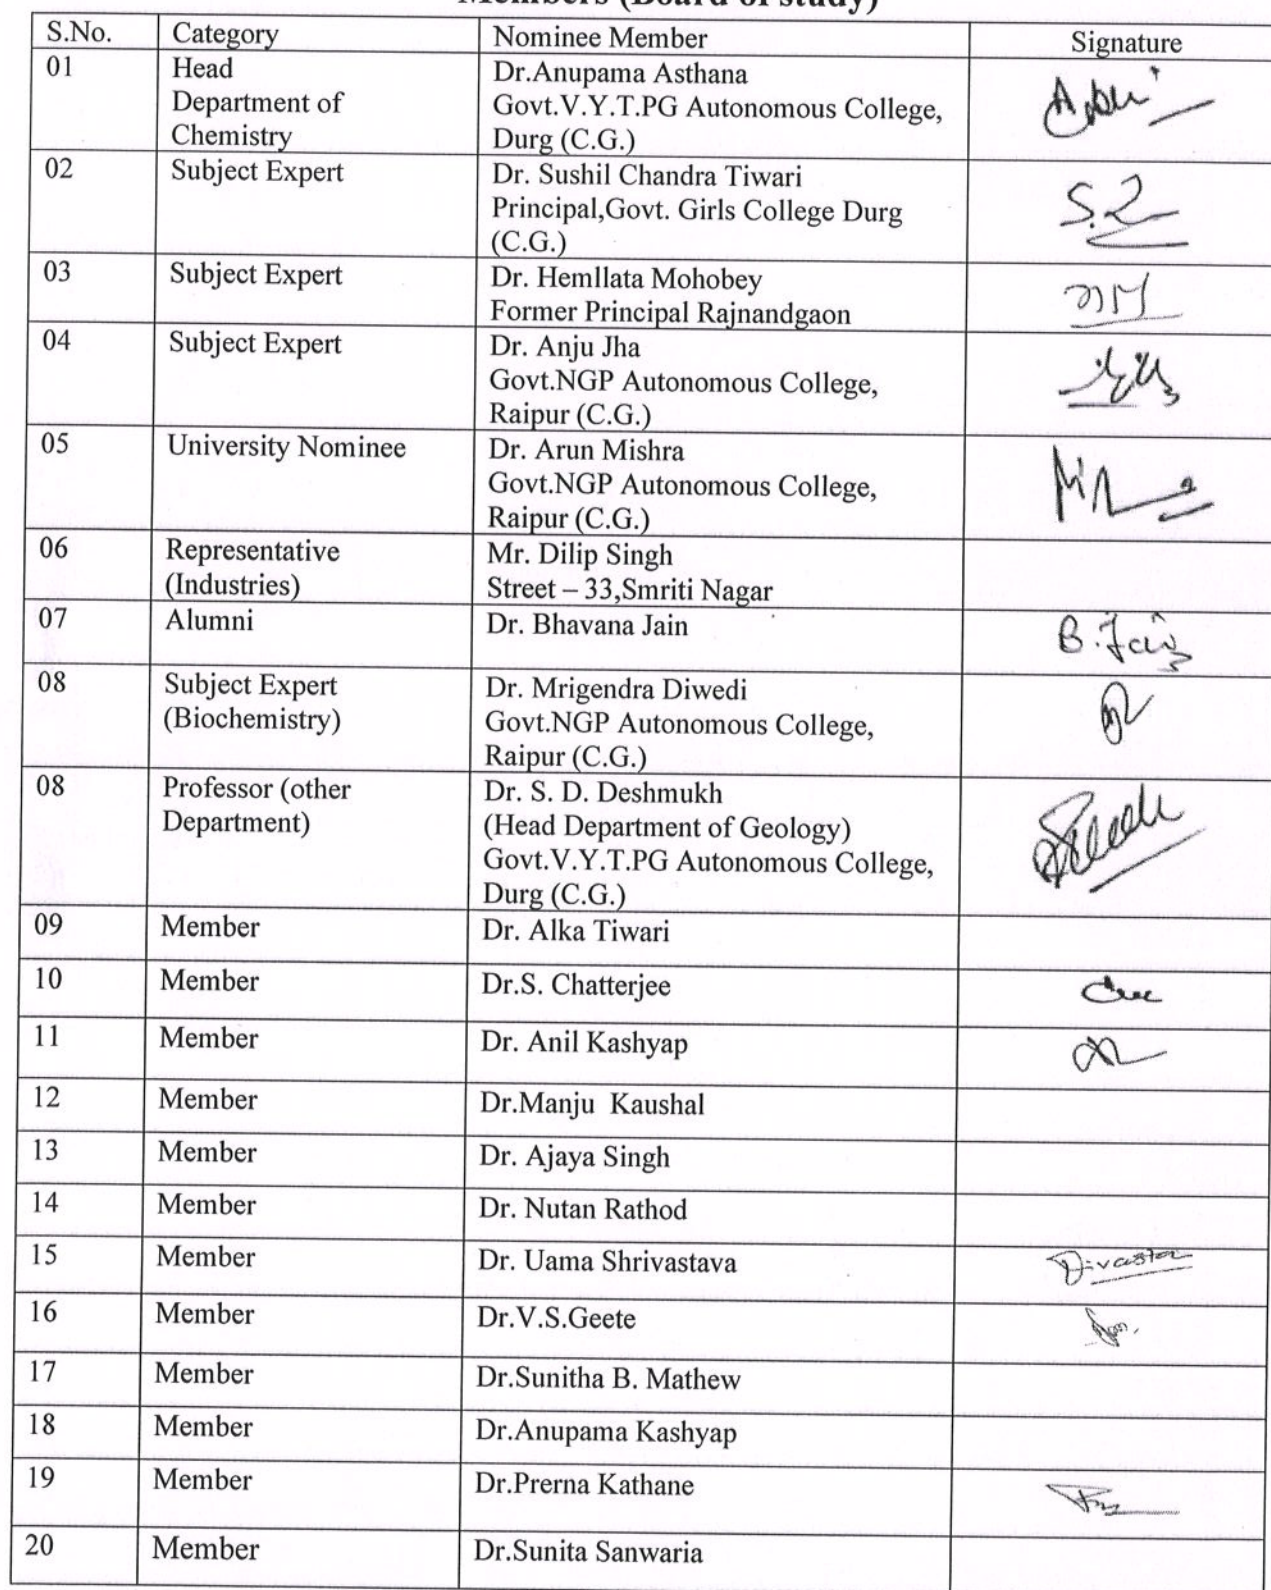 Members (Board of study)
S.No. Category Nominee Member Signature
01 Head Dr.Anupama Asthana
Department of Govt.V.Y.T.PG Autonomous College,
Chemistry Durg (C.G.)
02 Subject Expert Dr. Sushil Chandra Tiwari
Principal,Govt. Girls College Durg
(C.G.)
03 Subject Expert Dr. Hemllata Mohobey
Former Principal Rajnandgaon
04 Subject Expert Dr. Anju Jha
Govt.NGP Autonomous College,
Raipur (C.G.)
05 University Nominee Dr. Arun Mishra
Govt.NGP Autonomous College,
Raipur (C.G.)
06 Representative Mr. Dilip Singh
(Industries) Street – 33,Smriti Nagar
07 Alumni Dr. Bhavana Jain B. Jain
08 Subject Expert Dr. Mrigendra Diwedi
(Biochemistry) Govt.NGP Autonomous College,
Raipur (C.G.)
08 Professor (other Dr. S. D. Deshmukh
Department) (Head Department of Geology)
Govt.V.Y.T.PG Autonomous College,
Durg (C.G.)
09 Member Dr. Alka Tiwari
10 Member Dr.S. Chatterjee
11 Member Dr. Anil Kashyap
12 Member Dr.Manju Kaushal
13 Member Dr. Ajaya Singh
14 Member Dr. Nutan Rathod
15 Member Dr. Uama Shrivastava
16 Member Dr.V.S.Geete
17 Member Dr.Sunitha B. Mathew
18 Member Dr.Anupama Kashyap
19 Member Dr.Prerna Kathane
20 Member Dr.Sunita Sanwaria